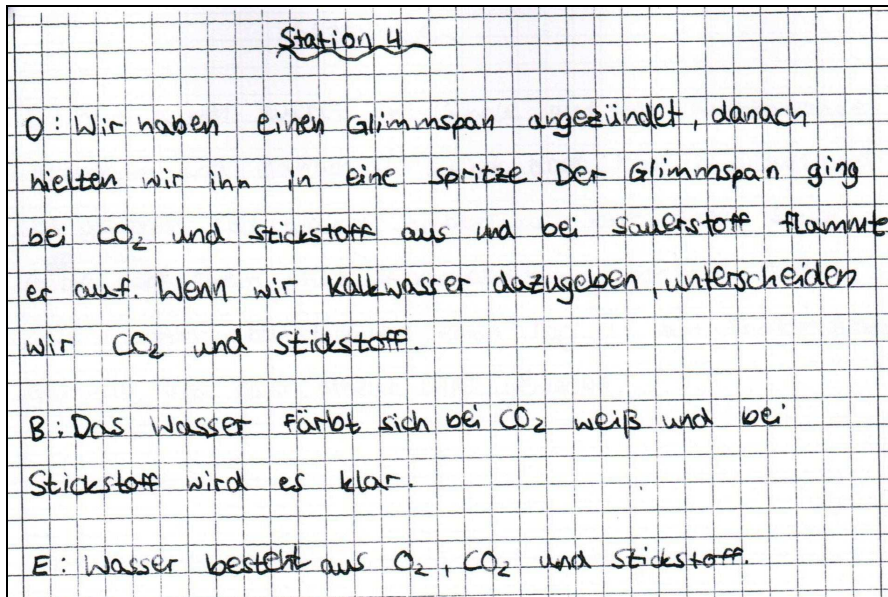 Station 4
D: Wir haben einen Glimmspan angezündet, danach
hielten wir ihn in eine spritze. Der Glimmspan ging
bei CO₂ und stickstoff aus und bei sauerstoff flammte
er auf. Wenn wir Kalkwasser dazugeben, unterscheiden
wir CO₂ und Stickstoff.
B: Das Wasser färbt sich bei CO₂ weiß und bei
Stickstoff wird es klar.
E: Wasser besteht aus O₂, CO₂ und stickstoff.